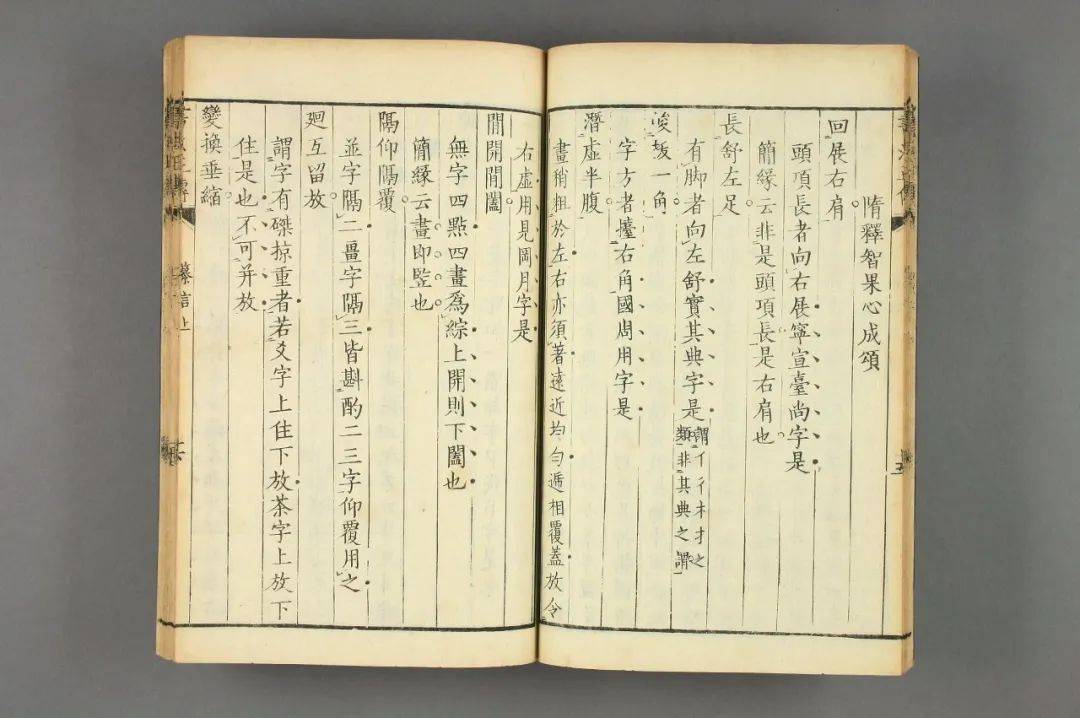 隋釋智果心成頌
回展右肩
頭項長者向右展寧宣臺尚字是
簡緣云非是頭項長是右肩也
長舒左足
有脚者向左舒實其典字是謂亻彳木扌之類非其典之謂
峻坂一角
字方者擡右角國周用字是
潛虛半腹
畫稍粗於左右亦須著遠近均勻遞相覆蓋放令
右虛用見岡月字是
間開間闔
無字四點四畫為綜上開則下闔也
簡緣云畫即監也
隔仰隔覆
並字隔二畺字隔三皆斟酌二三字仰覆用之
迴互留放
謂字有磔掠重者若爻字上住下放茶字上放下
住是也不可并放
變換垂縮
纂言上